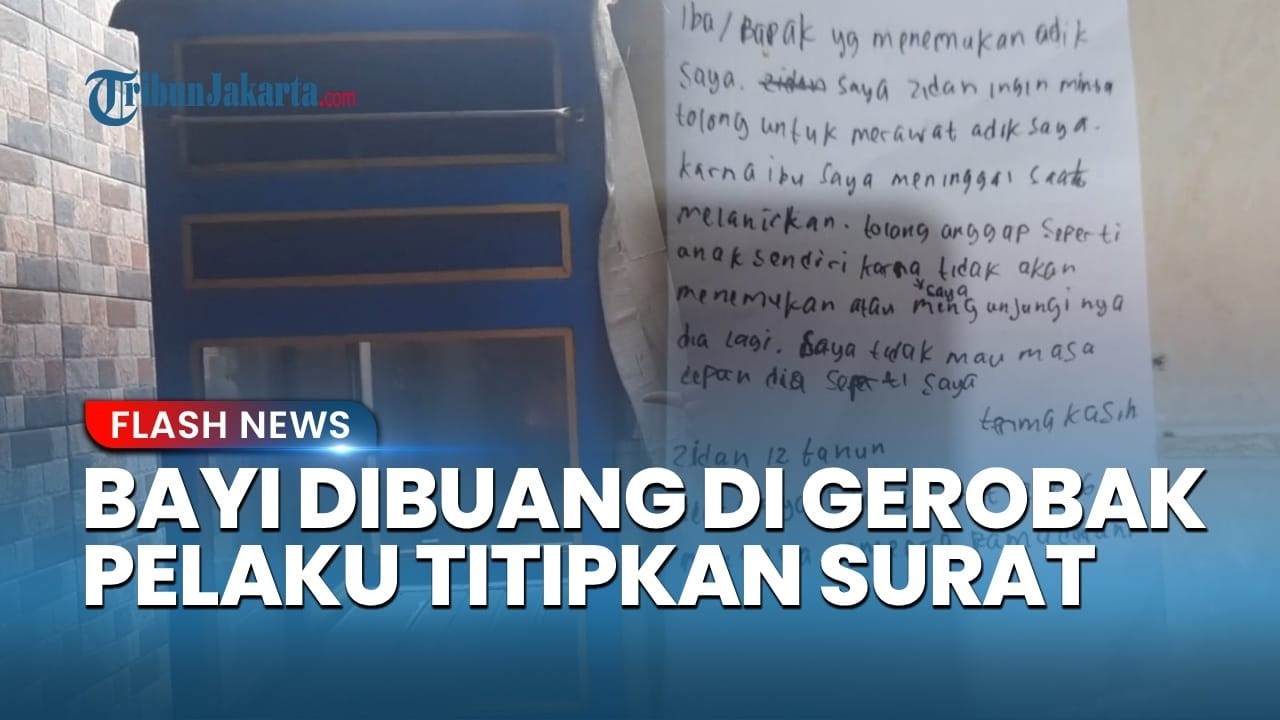 TribunJakarta.com
Iba/Bapak yg menemukan adik
saya. zidan saya zidan ingin minta
tolong untuk merawat adik saya.
karna ibu saya meninggal saat
melanirkan. tolong anggap seperti
anak sendiri karna tidak akan
saya
menemukan atau mengunjungi nya
dia lagi. saya tidak mau masa
depan dia seperti saya
terma kasih
zidan 12 tanun
FLASH NEWS
BAYI DIBUANG DI GEROBAK
PELAKU TITIPKAN SURAT